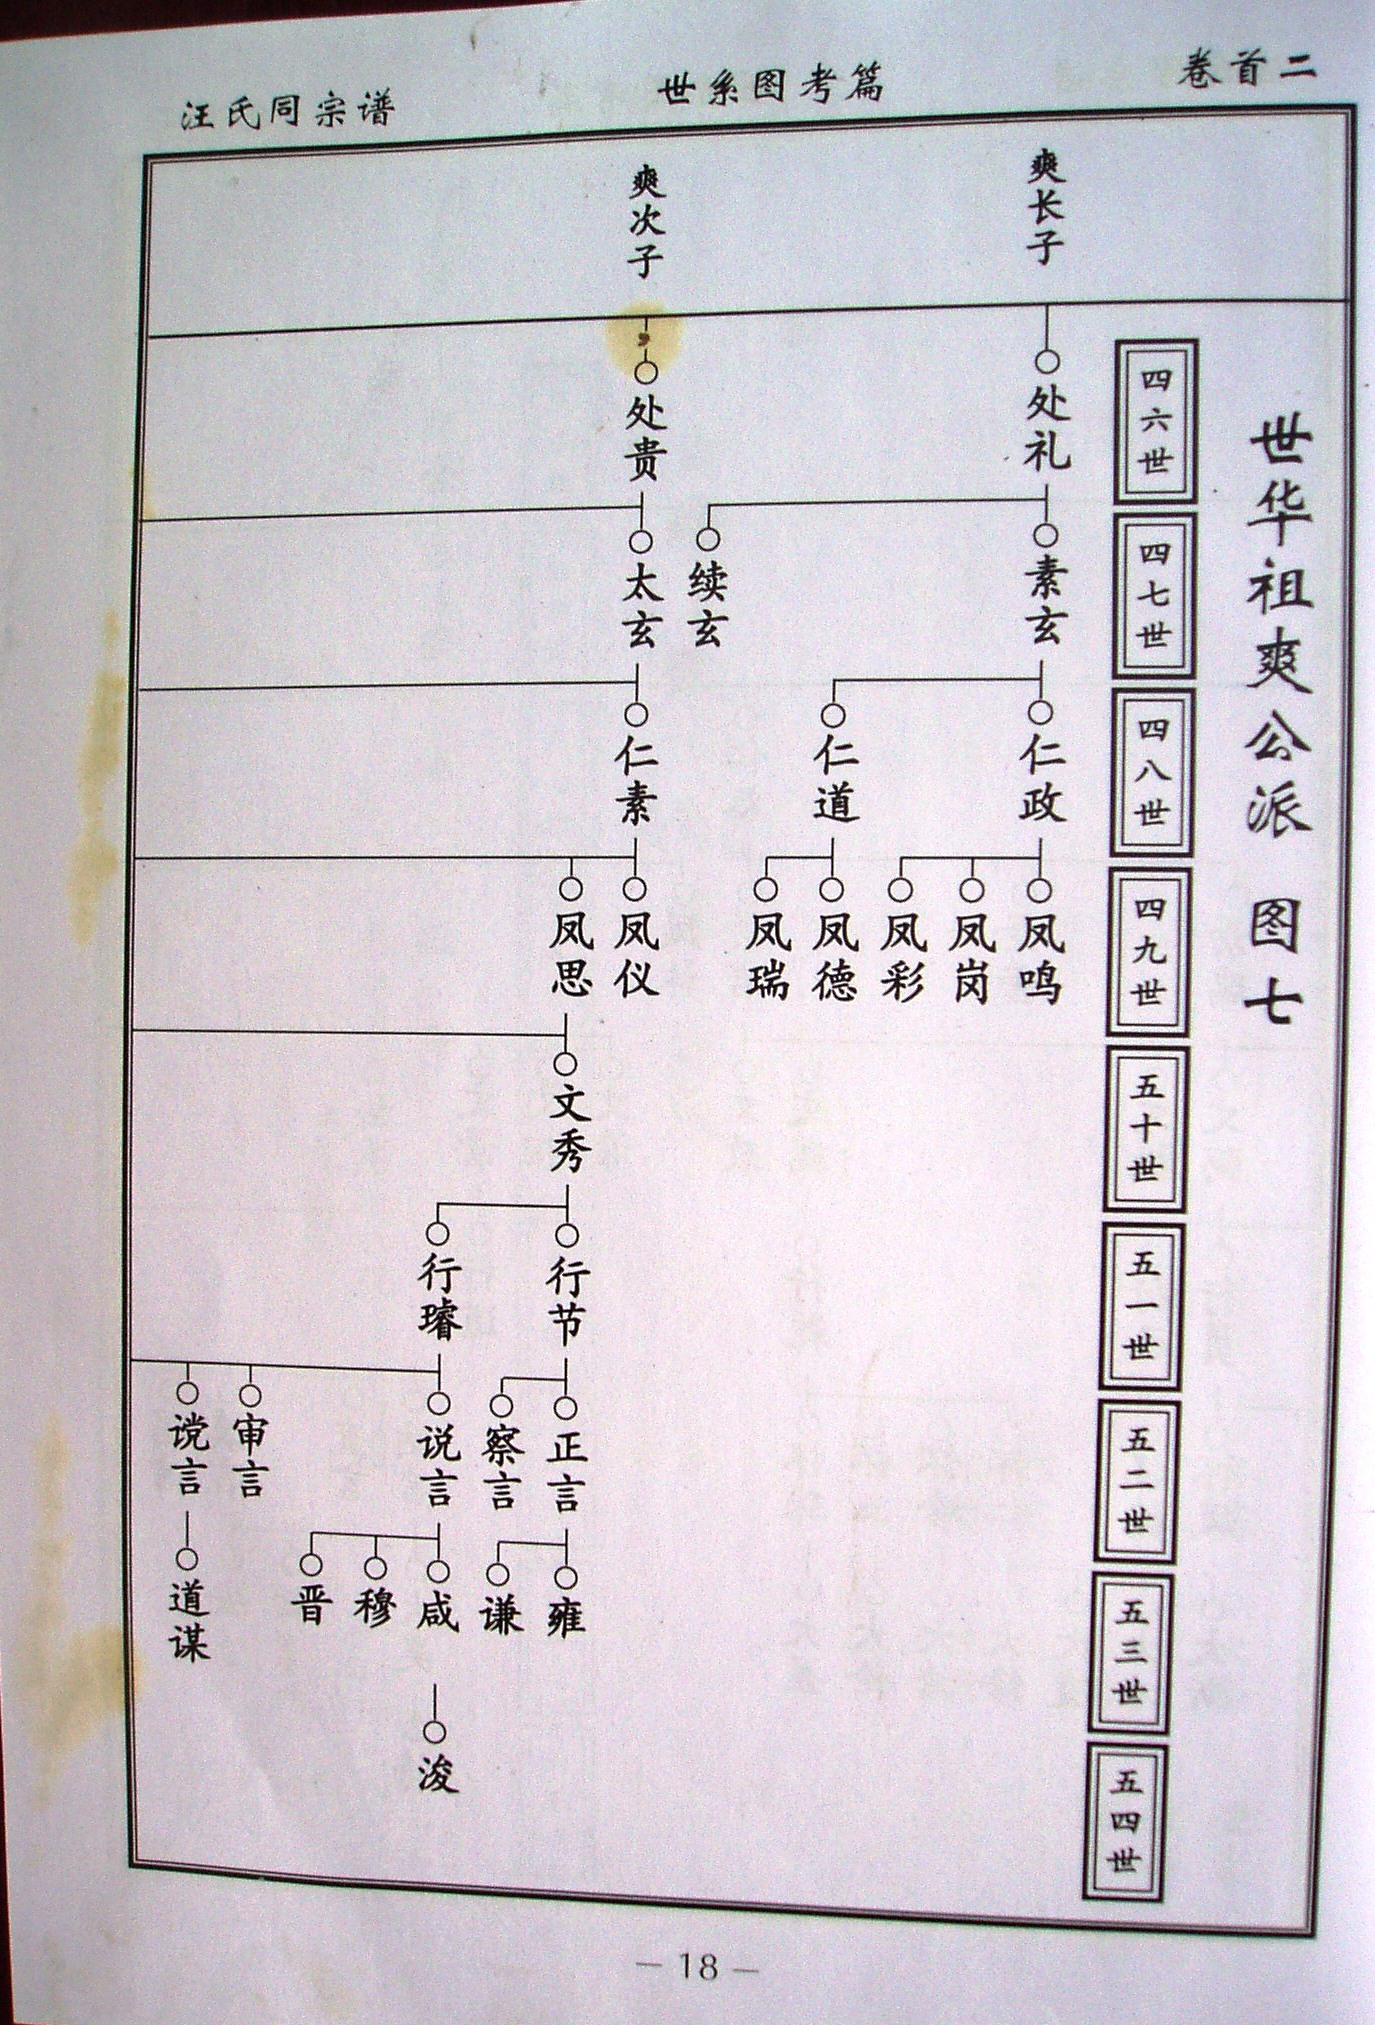 卷首二
世系图考篇
汪氏同宗谱
世华祖爽公派 图七
四六世
四七世
四八世
四九世
五十世
五一世
五二世
五三世
五四世
爽长子
爽次子
处礼
处贵
素玄
续玄
太玄
仁政
仁道
仁素
凤鸣
凤岗
凤彩
凤德
凤瑞
凤仪
凤思
文秀
行节
行璿
正言
察言
说言
审言
谠言
雍
谦
咸
穆
晋
道谋
浚
— 18 —